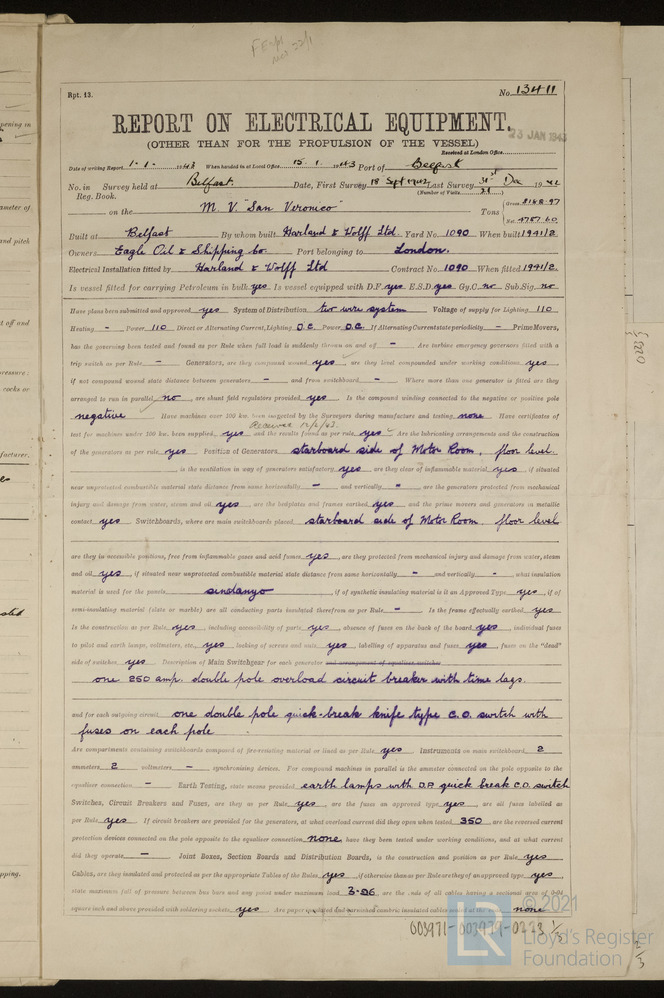 Rpt. 13.
No. 13411
REPORT ON ELECTRICAL EQUIPMENT.
(OTHER THAN FOR THE PROPULSION OF THE VESSEL)
23 JAN 1943
Received at London Office
Date of writing Report 1.1. 1943 When handed in at Local Office 15.1.1943 Port of Belfast
No. in Survey held at Belfast. Date, First Survey 18 Sept 1942 Last Survey 31st Dec 1942
Reg. Book. (Number of Visits 28)
on the M. V. "San Veronico" Tons Gross 8168.97 Net 4787.60
Built at Belfast By whom built Harland & Wolff Ltd. Yard No. 1090 When built 1941/2
Owners Eagle Oil & Shipping Co Port belonging to London.
Electrical Installation fitted by Harland & Wolff Ltd Contract No. 1090 When fitted 1941/2
Is vessel fitted for carrying Petroleum in bulk yes Is vessel equipped with D.F. yes E.S.D. yes Gy.C. no Sub.Sig. no
Have plans been submitted and approved yes System of Distribution two wire system Voltage of supply for Lighting 110
Heating - Power 110 Direct or Alternating Current, Lighting D.C. Power D.C. If Alternating Current state periodicity - Prime Movers,
has the governing been tested and found as per Rule when full load is suddenly thrown on and off - Are turbine emergency governors fitted with a
trip switch as per Rule - Generators, are they compound wound yes, are they level compounded under working conditions, yes
if not compound wound state distance between generators - and from switchboard - Where more than one generator is fitted are they
arranged to run in parallel no, are shunt field regulators provided yes Is the compound winding connected to the negative or positive pole
negative Have machines over 100 kw. been inspected by the Surveyors during manufacture and testing none Have certificates of
test for machines under 100 kw. been supplied yes and the results found as per rule yes Are the lubricating arrangements and the construction
of the generators as per rule yes Position of Generators starboard side of Motor Room, floor level.
is the ventilation in way of generators satisfactory yes are they clear of inflammable material yes if situated
near unprotected combustible material state distance from same horizontally - and vertically - are the generators protected from mechanical
injury and damage from water, steam and oil yes are the bedplates and frames earthed yes and the prime movers and generators in metallic
contact yes Switchboards, where are main switchboards placed starboard side of Motor Room. floor level
are they in accessible positions, free from inflammable gases and acid fumes yes, are they protected from mechanical injury and damage from water, steam
and oil yes, if situated near unprotected combustible material state distance from same horizontally - and vertically - what insulation
material is used for the panels sindanyo if of synthetic insulating material is it an Approved Type yes, if of
semi-insulating material (slate or marble) are all conducting parts insulated therefrom as per Rule - Is the frame effectually earthed yes
Is the construction as per Rule yes, including accessibility of parts yes, absence of fuses on the back of the board yes, individual fuses
to pilot and earth lamps, voltmeters, etc. yes locking of screws and nuts yes, labelling of apparatus and fuses yes, fuses on the "dead"
side of switches yes Description of Main Switchgear for each generator and arrangement of equaliser switches
one 250 amp. double pole overload circuit breaker with time lags.
and for each outgoing circuit one double pole quick-break knife type C.O. switch with
fuses on each pole
Are compartments containing switchboards composed of fire-resisting material or lined as per Rule yes Instruments on main switchboard 2
ammeters 2 voltmeters - synchronising devices. For compound machines in parallel is the ammeter connected on the pole opposite to the
equaliser connection - Earth Testing, state means provided earth lamps with D.P. quick break C.O. switch
Switches, Circuit Breakers and Fuses, are they as per Rule yes are the fuses an approved type yes, are all fuses labelled as
per Rule yes If circuit breakers are provided for the generators, at what overload current did they open when tested 350 are the reversed current
protection devices connected on the pole opposite to the equaliser connection none, have they been tested under working conditions, and at what current
did they operate - Joint Boxes, Section Boards and Distribution Boards, is the construction and position as per Rule yes
Cables, are they insulated and protected as per the appropriate Tables of the Rules yes if otherwise than as per Rule are they of an approved type yes
state maximum fall of pressure between bus bars and any point under maximum load 3.96 are the ends of all cables having a sectional area of 0.04
square inch and above provided with soldering sockets, yes Are paper insulated and varnished cambric insulated cables sealed at the ends none
003971-003979-0223 1/3
© 2021
LR
Lloyd's Register
Foundation